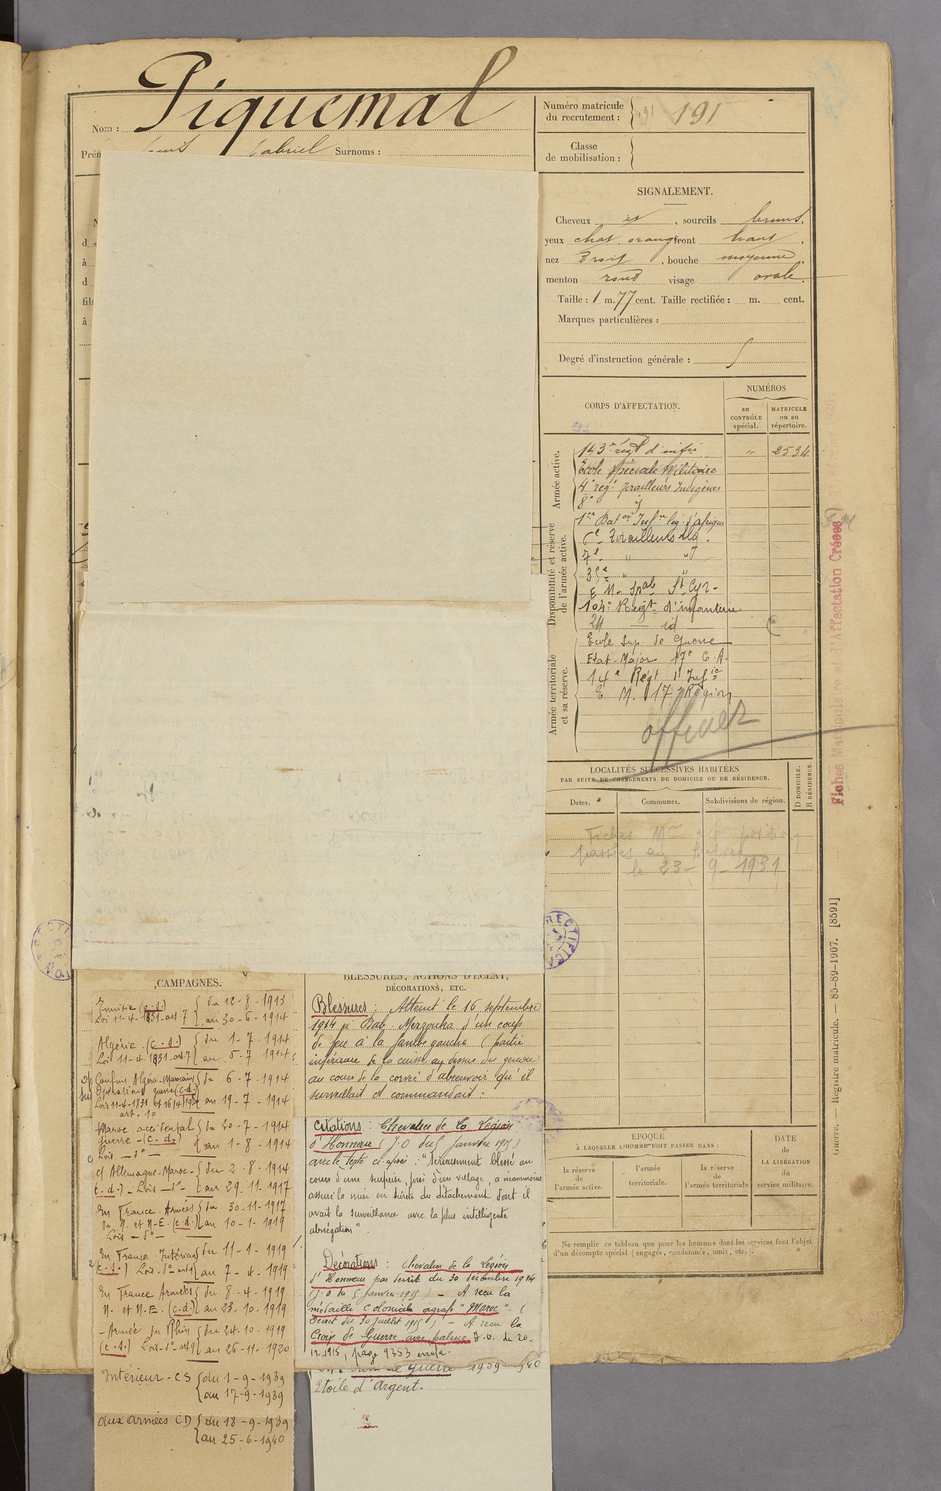 Nom : Piquemal
Gabriel Surnoms :
Numéro matricule
du recrutement : 191
Classe
de mobilisation :
SIGNALEMENT.
Cheveux et , sourcils bruns,
yeux chat. orangé front haut ,
nez Droit , bouche moyenne,
menton rond visage ovale.
Taille : 1 m. 77 cent. Taille rectifiée : m. cent.
Marques particulières :
Degré d'instruction générale : 5
CORPS D'AFFECTATION.
NUMÉROS
au
CONTRÔLE
spécial.
MATRICULE
ou au
répertoire.
Armée active.
143e régt d'infie " 2534
Ecole Spéciale Militaire
4e régt Tirailleurs Indigènes
8e id
Disponibilité et réserve
de l'armée active.
1er Baton Infie lég. d'afrique
6e Tirailleurs Alg.
7e " "
35e " "
E. M. Spale St Cyr -
104e Régt d'infanterie
24 — id —
Armée territoriale
et sa réserve.
Ecole Sup. de Guerre
Etat Major 17e C.A.
14e Régt d'Infie
E. M. 17e Région
officier
LOCALITÉS SUCCESSIVES HABITÉES
PAR SUITE DE CHANGEMENTS DE DOMICILE OU DE RÉSIDENCE.
Dates. Communes. Subdivisions de région.
D DOMICILE.
R RÉSIDENCE.
le 23 - 9 - 1931
Fiches Matriculaire et d'Affectation Créées
Guerre. — Registre matricule. — 85-89-1907. [8591]
CAMPAGNES.
Tunisie (c.s.) du 12-8-1913
Loi 11-4-1831-art 7 au 30-6-1914
Algérie. (c.s.) du 1-7-1914
Loi 11-4-1831-art 7 au 5-7-1914
Confins Algéro-Marocains du 6-7-1914
Opérations guerre (c.d.)
au 19-7-1914
art. 10
Maroc occidental du 20-7-1914
guerre - (c.d.) au 1-8-1914
Lois — do —
c/ Allemagne-Maroc- du 2-8-1914
(c.d.) - Lois — do — au 29-11-1917
En France. Armées du 30-11-1917
du N. et N-E. (c.d.) au 10-1-1919
Lois — do —
En France. Intérieur du 11-1-1919
(c.s.) au 7-4-1919
En France Armées du 8-4-1919
N. et N.E. (c.d.) au 23.10.1919
- Armée du Rhin du 24-10-1919
(c.s.) au 26-11-1920
Intérieur - CS du 1-9-1939
au 17-9-1939
aux armées CD du 18-9-1939
au 25-6-1940
BLESSURES, ACTIONS D'ÉCLAT,
DÉCORATIONS, ETC.
Blessures : Atteint le 16 septembre
1914 à Bab Merzouka d'un coup
de feu à la jambe gauche (partie
inférieure de la cuisse au dessus du genou)
au cours de la corvée d'abreuvoir qu'il
surveillait et commandait :
Citations : Chevalier de la Légion
d'Honneur (J.O du 5 Janvier 1915)
avec le texte ci-après : "Sérieusement blessé au
cours d'une surprise, près d'un village, a néanmoins
assuré la mise en sûreté du détachement dont il
avait la surveillance avec la plus intelligente
abnégation".
Décorations : Chevalier de la Légion
d'Honneur par décret du 30 décembre 1914
(J.O du 5 Janvier 1915) — A reçu la
médaille Coloniale agrafe "Maroc". (
Décret du 30 juillet 1915) — A reçu la
Croix de Guerre avec palme J.O. du 20-
12.1915, page 9353 errata.
de guerre 1939 - 40
Etoile d'Argent.
EPOQUE
À LAQUELLE L'HOMME DOIT PASSER DANS :
la réserve
de l'armée active.
l'armée
territoriale.
la réserve
de l'armée territoriale
DATE
de
LA LIBÉRATION
du
service militaire.
Ne remplir ce tableau que pour les hommes dont les services font l'objet
d'un décompte spécial (engagés, condamnés, omis, etc.).